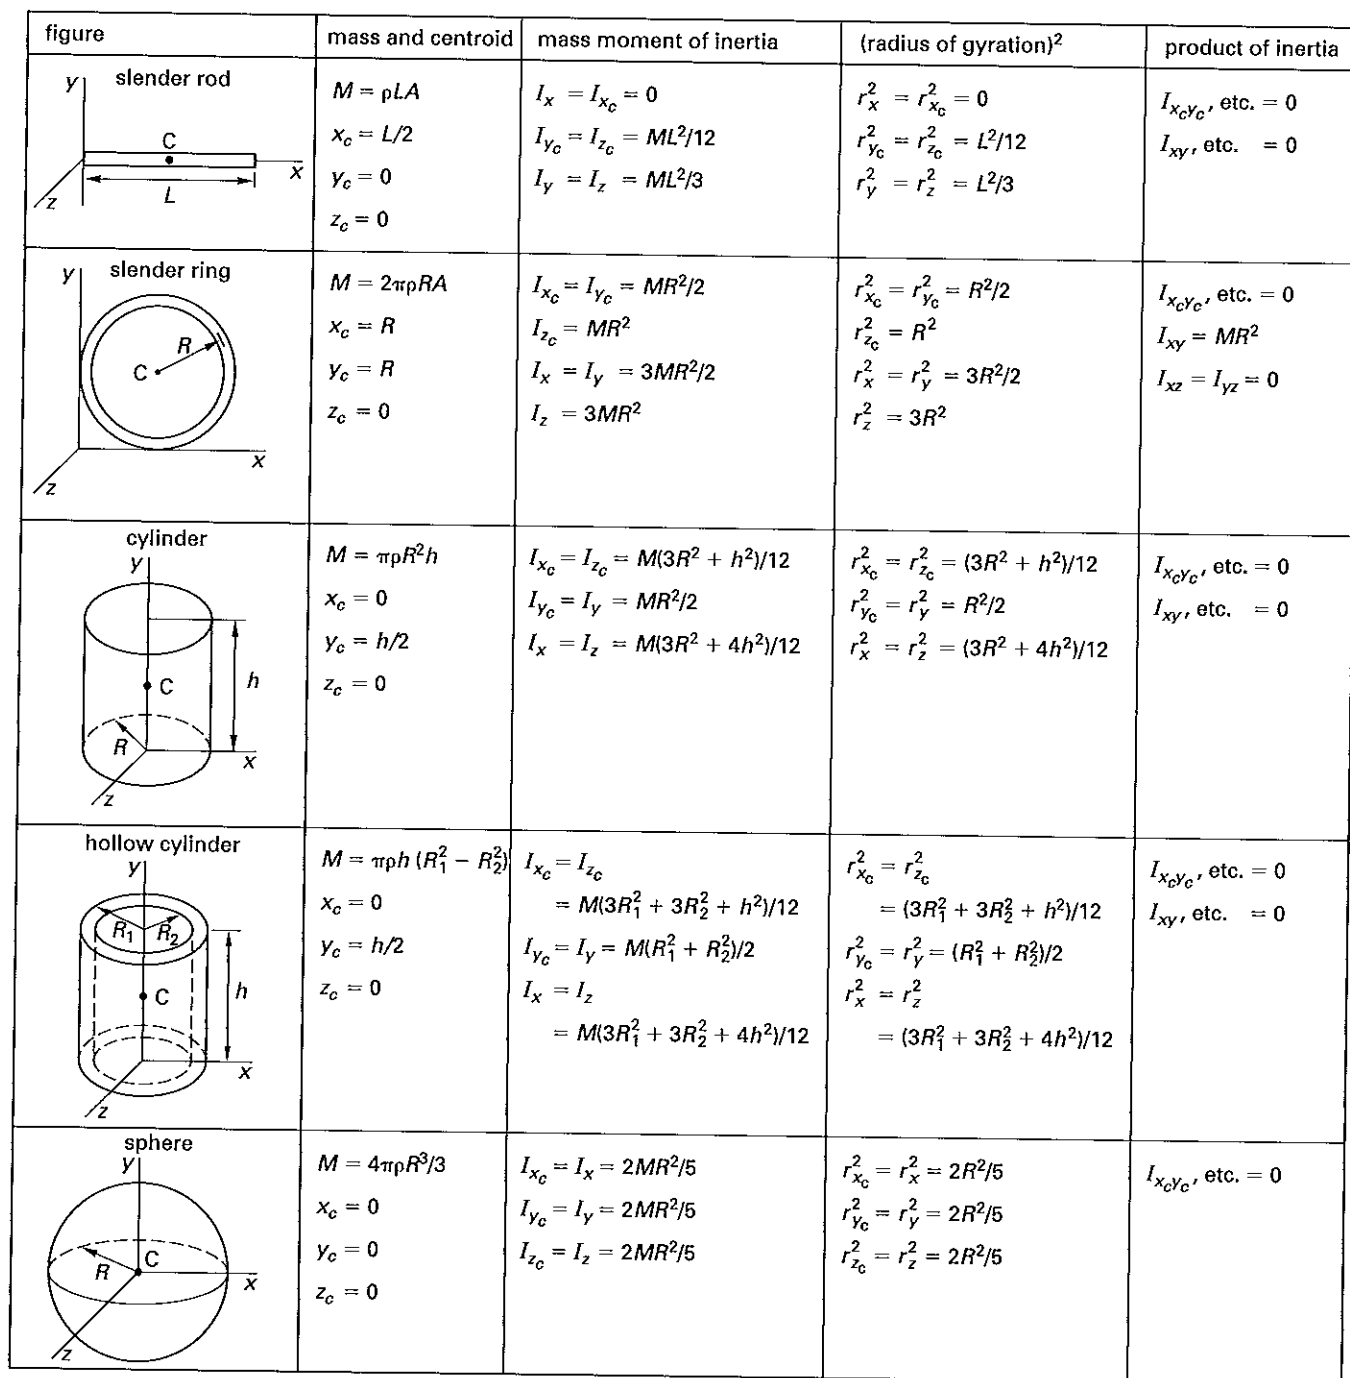 figure	mass and centroid	mass moment of inertia	(radius of gyration)²	product of inertia
slender rod
y
C
x
L
z
M = ρLA
x_c = L/2
y_c = 0
z_c = 0
I_x = I_{x_c} = 0
I_{y_c} = I_{z_c} = ML²/12
I_y = I_z = ML²/3
r²_x = r²_{x_c} = 0
r²_{y_c} = r²_{z_c} = L²/12
r²_y = r²_z = L²/3
I_{x_c y_c}, etc. = 0
I_{xy}, etc. = 0
slender ring
y
R
C
x
z
M = 2πρRA
x_c = R
y_c = R
z_c = 0
I_{x_c} = I_{y_c} = MR²/2
I_{z_c} = MR²
I_x = I_y = 3MR²/2
I_z = 3MR²
r²_{x_c} = r²_{y_c} = R²/2
r²_{z_c} = R²
r²_x = r²_y = 3R²/2
r²_z = 3R²
I_{x_c y_c}, etc. = 0
I_{xy} = MR²
I_{xz} = I_{yz} = 0
cylinder
y
C
h
R
x
z
M = πρR²h
x_c = 0
y_c = h/2
z_c = 0
I_{x_c} = I_{z_c} = M(3R² + h²)/12
I_{y_c} = I_y = MR²/2
I_x = I_z = M(3R² + 4h²)/12
r²_{x_c} = r²_{z_c} = (3R² + h²)/12
r²_{y_c} = r²_y = R²/2
r²_x = r²_z = (3R² + 4h²)/12
I_{x_c y_c}, etc. = 0
I_{xy}, etc. = 0
hollow cylinder
y
R₁ R₂
C
h
x
z
M = πρh (R₁² − R₂²)
x_c = 0
y_c = h/2
z_c = 0
I_{x_c} = I_{z_c}
= M(3R₁² + 3R₂² + h²)/12
I_{y_c} = I_y = M(R₁² + R₂²)/2
I_x = I_z
= M(3R₁² + 3R₂² + 4h²)/12
r²_{x_c} = r²_{z_c}
= (3R₁² + 3R₂² + h²)/12
r²_{y_c} = r²_y = (R₁² + R₂²)/2
r²_x = r²_z
= (3R₁² + 3R₂² + 4h²)/12
I_{x_c y_c}, etc. = 0
I_{xy}, etc. = 0
sphere
y
C
R
x
z
M = 4πρR³/3
x_c = 0
y_c = 0
z_c = 0
I_{x_c} = I_x = 2MR²/5
I_{y_c} = I_y = 2MR²/5
I_{z_c} = I_z = 2MR²/5
r²_{x_c} = r²_x = 2R²/5
r²_{y_c} = r²_y = 2R²/5
r²_{z_c} = r²_z = 2R²/5
I_{x_c y_c}, etc. = 0